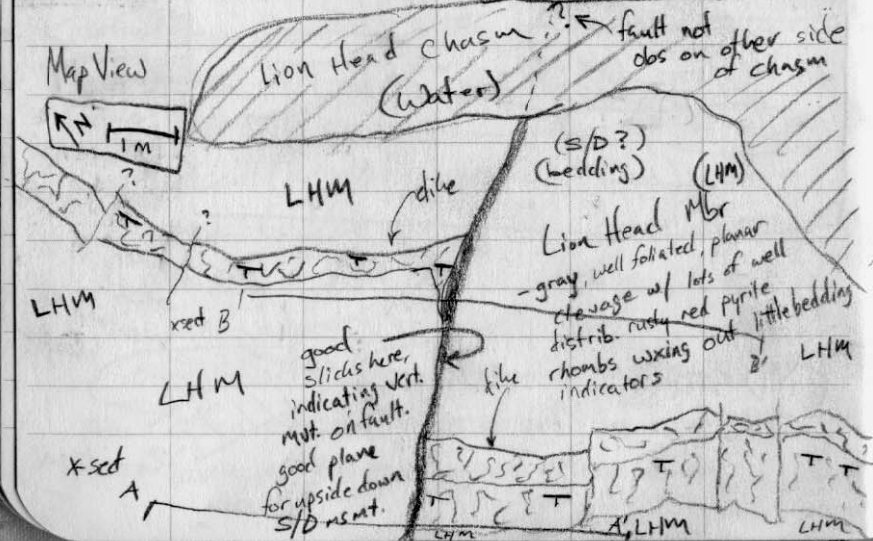 Lion Head Chasm
(Water)
??
fault not
obs on other side
of chasm
Map View
N
1 M
?
?
?
LHM
dike
(S/D?)
(bedding)
(LHM)
Lion Head Mbr
- gray, well foliated, planar
cleavage w/ lots of well
distrib. rusty red pyrite
rhombs wxing out little bedding
indicators
T
T
T
T
LHM
xsect B
B'
LHM
LHM
good
slicks here,
indicating vert.
mvt. on fault.
good plane
for upside down
S/D msmt.
dike
x-sect
A
T
T
T
T
T
A'
LHM
LHM
LHM